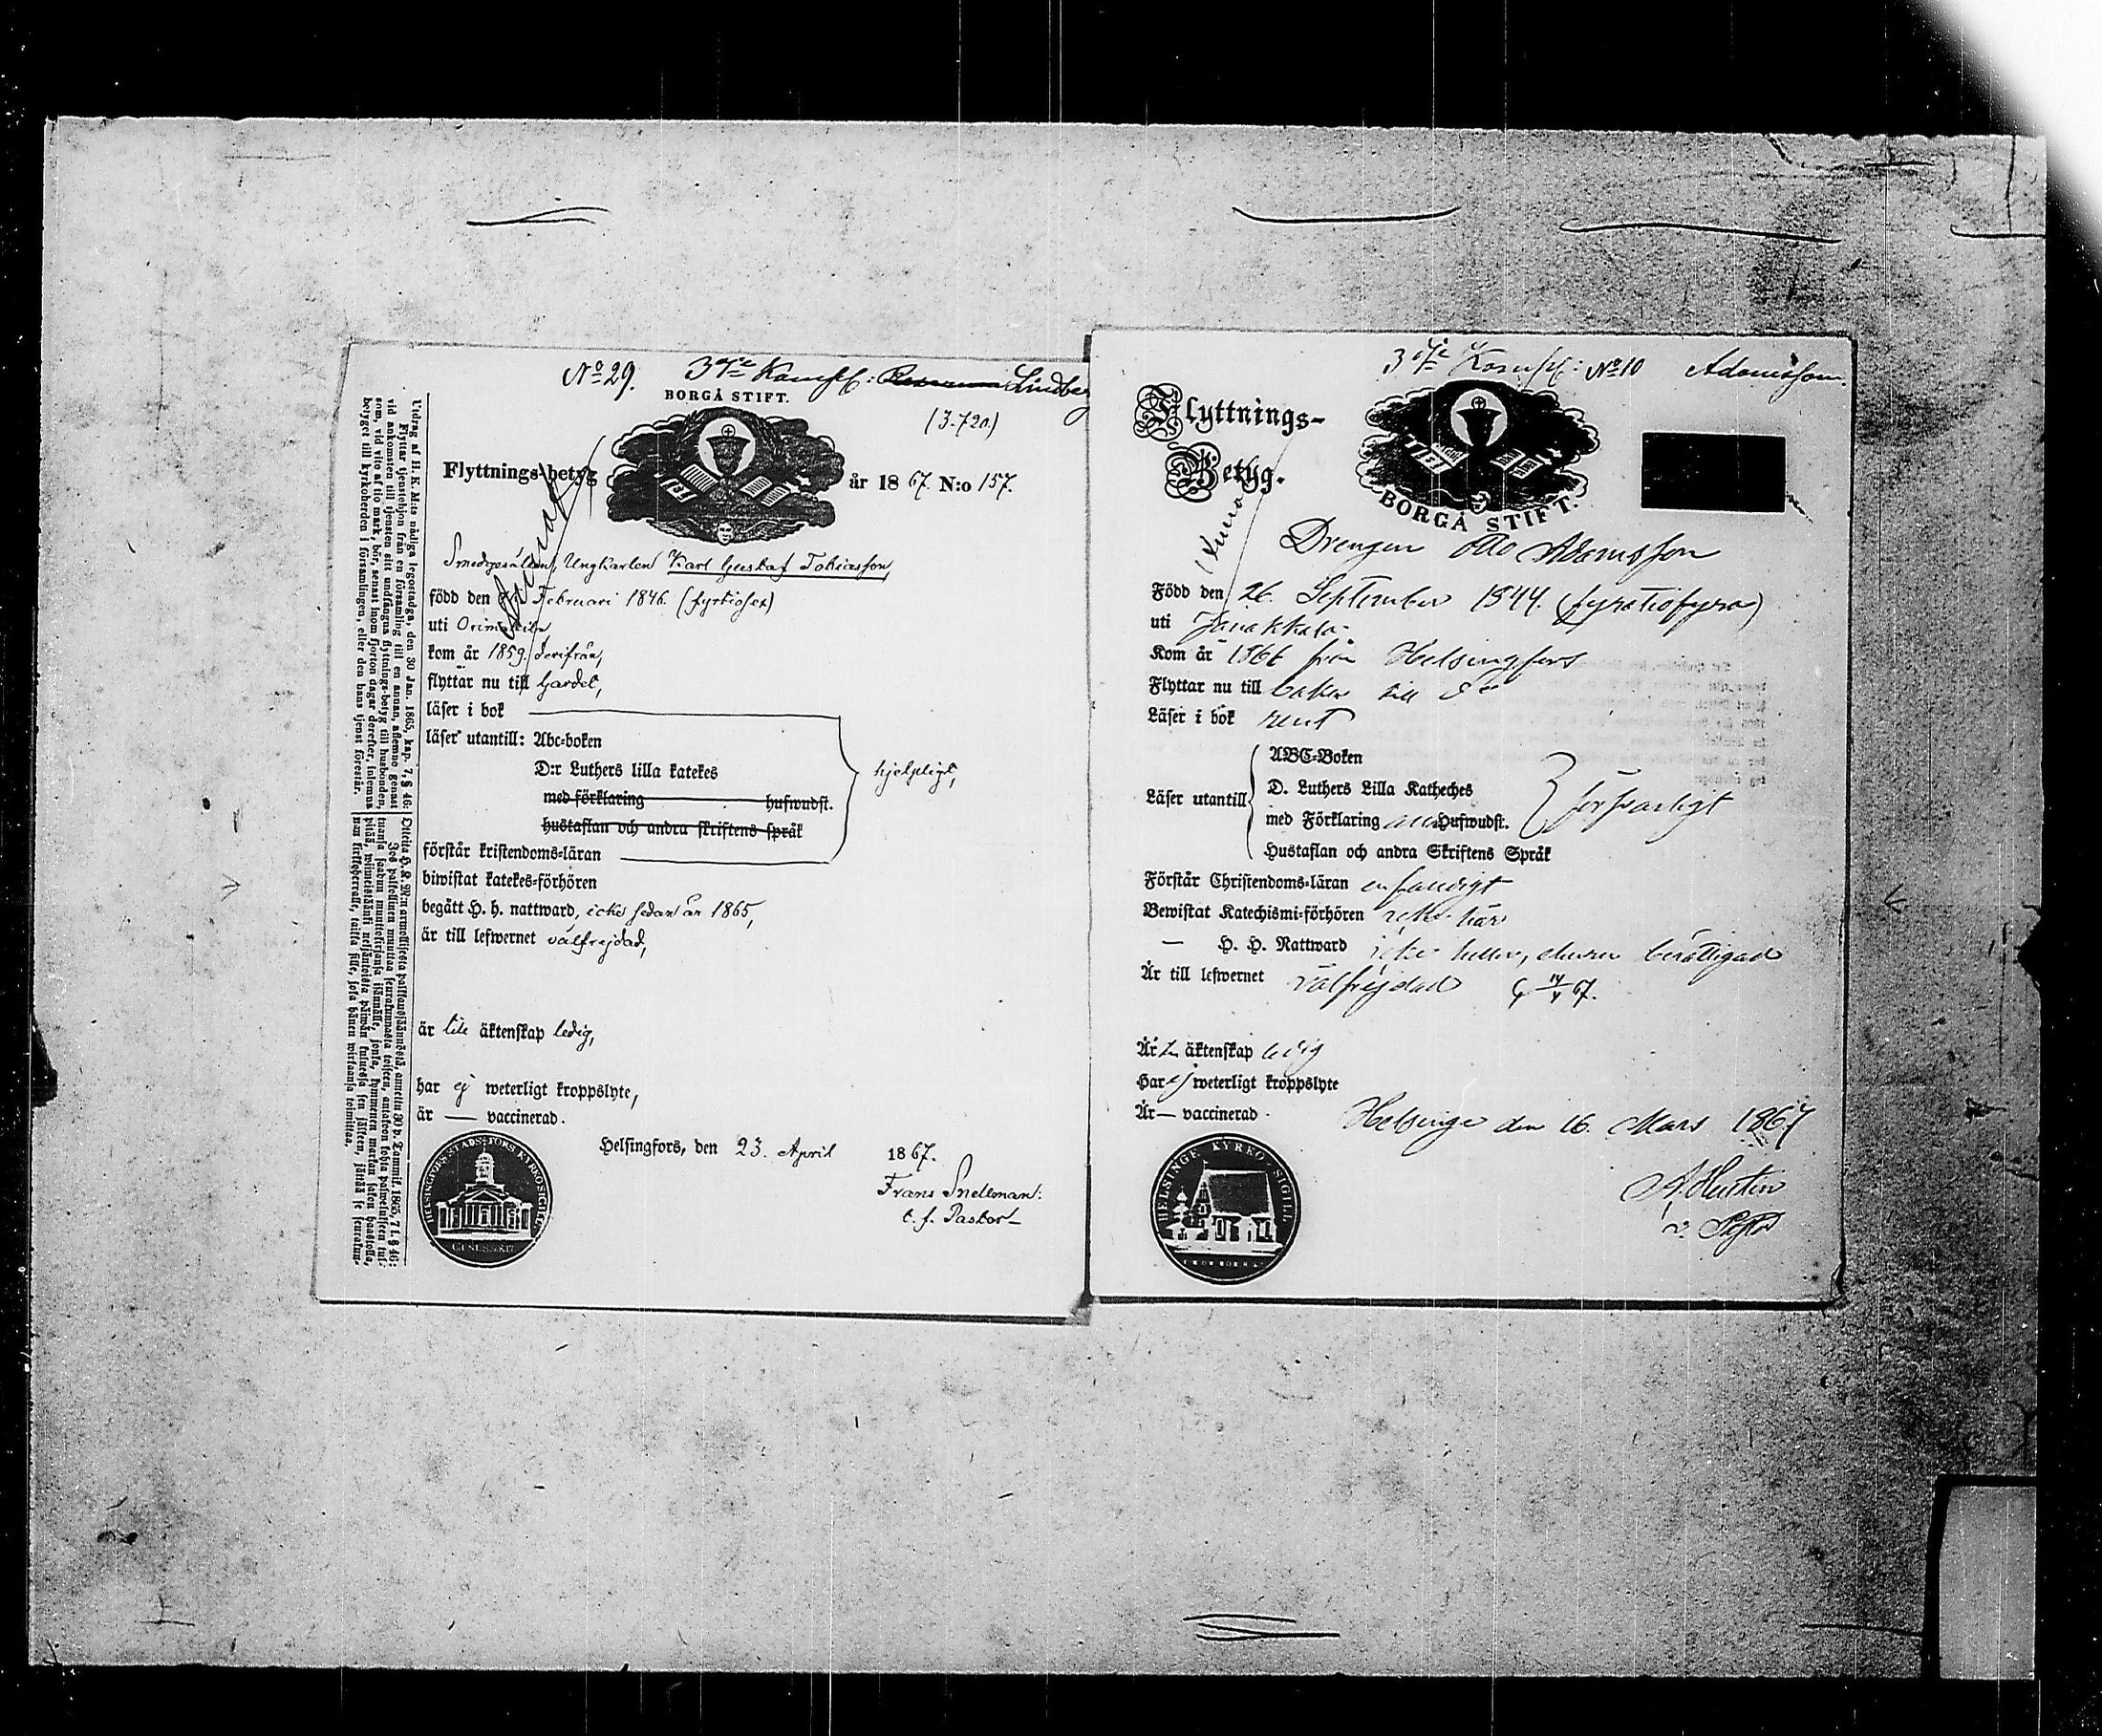 No 29. 3dje Komp: Lindberg
BORGÅ STIFT.
(3.720.)
Flyttnings-betyg år 1867. N:o 157.
Smedgesällen, Ungkarlen Karl Gustaf Tobiasson,
född den Februari 1846. (fyrtiosex)
uti Orimattila
kom år 1859. derifrån,
flyttar nu till Gardet,
läser i bok
läser utantill: Abc-boken
D:r Luthers lilla katekes
med förklaring hufwudst.
hustaflan och andra skriftens språk
hjelpligt,
förstår kristendoms-läran
biwistat katekes-förhören
begått H. H. nattward, icke sedan år 1865,
är till lefwernet välfrejdad,
är till äktenskap ledig,
har ej weterligt kroppslyte,
är — vaccinerad.
Helsingfors, den 23. April 1867.
Frans Snellman:
t. f. Pastor
HELSINGFORS STADS STORKYRKOSIGILL
Utdrag af H. K. M:ts nådiga legostadga, den 30 Jan. 1865, kap. 7, § 46:
Flyttar tjenstehjon från en församling till en annan, aflemne genast
vid ankomsten till tjensten sitt undfångna flyttnings-betyg till husbonden,
som, vid vite af tio mark, bör, senast inom fjorton dagar derefter, inlemna
betyget till kyrkoherden i församlingen, eller den hans tjenst förestår.
3dje Komp: No 10 Adamsson.
Flyttnings-
Betyg.
BORGÅ STIFT.
Drengen Otto Adamsson
Född den 26. September 1844. (fyratiofyra)
uti Janakkala
Kom år 1866 från Helsingfors
Flyttar nu till baka till do
Läser i bok rent
Läser utantill
ABC-Boken
D. Luthers Lilla Katheches
med Förklaring Hufwudst.
Hustaflan och andra Skriftens Språk
försvarligt
Förstår Christendoms-läran enfaldigt
Bewistat Katechismi-förhören icke här
— H. H. Nattward icke heller, ehuru berättigad
Är till lefwernet välfrejdad
Är till äktenskap ledig
Har ej weterligt kroppslyte
Är — vaccinerad.
Helsinge den 16. Mars 1867
HELSINGE KYRKO SIGILL